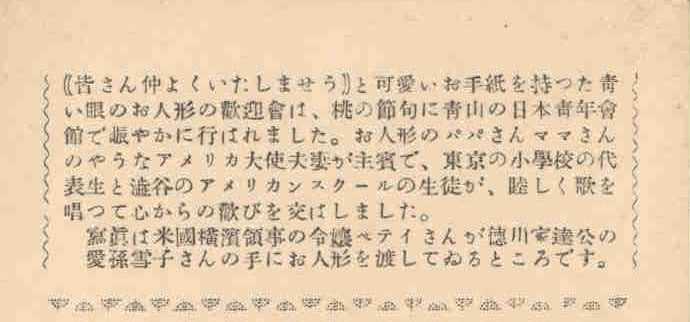 《皆さん仲よくいたしませう》と可愛いお手紙を持つた靑
い眼のお人形の歡迎會は、桃の節句に靑山の日本靑年會
館で賑やかに行はれました。お人形のパパさんママさん
のやうなアメリカ大使夫妻が主賓で、東京の小學校の代
表生と澁谷のアメリカンスクールの生徒が、睦しく歌を
唱つて心からの歡びを交はしました。
寫眞は米國橫濱領事の令孃ベテイさんが德川家達公の
愛孫雪子さんの手にお人形を渡してゐるところです。